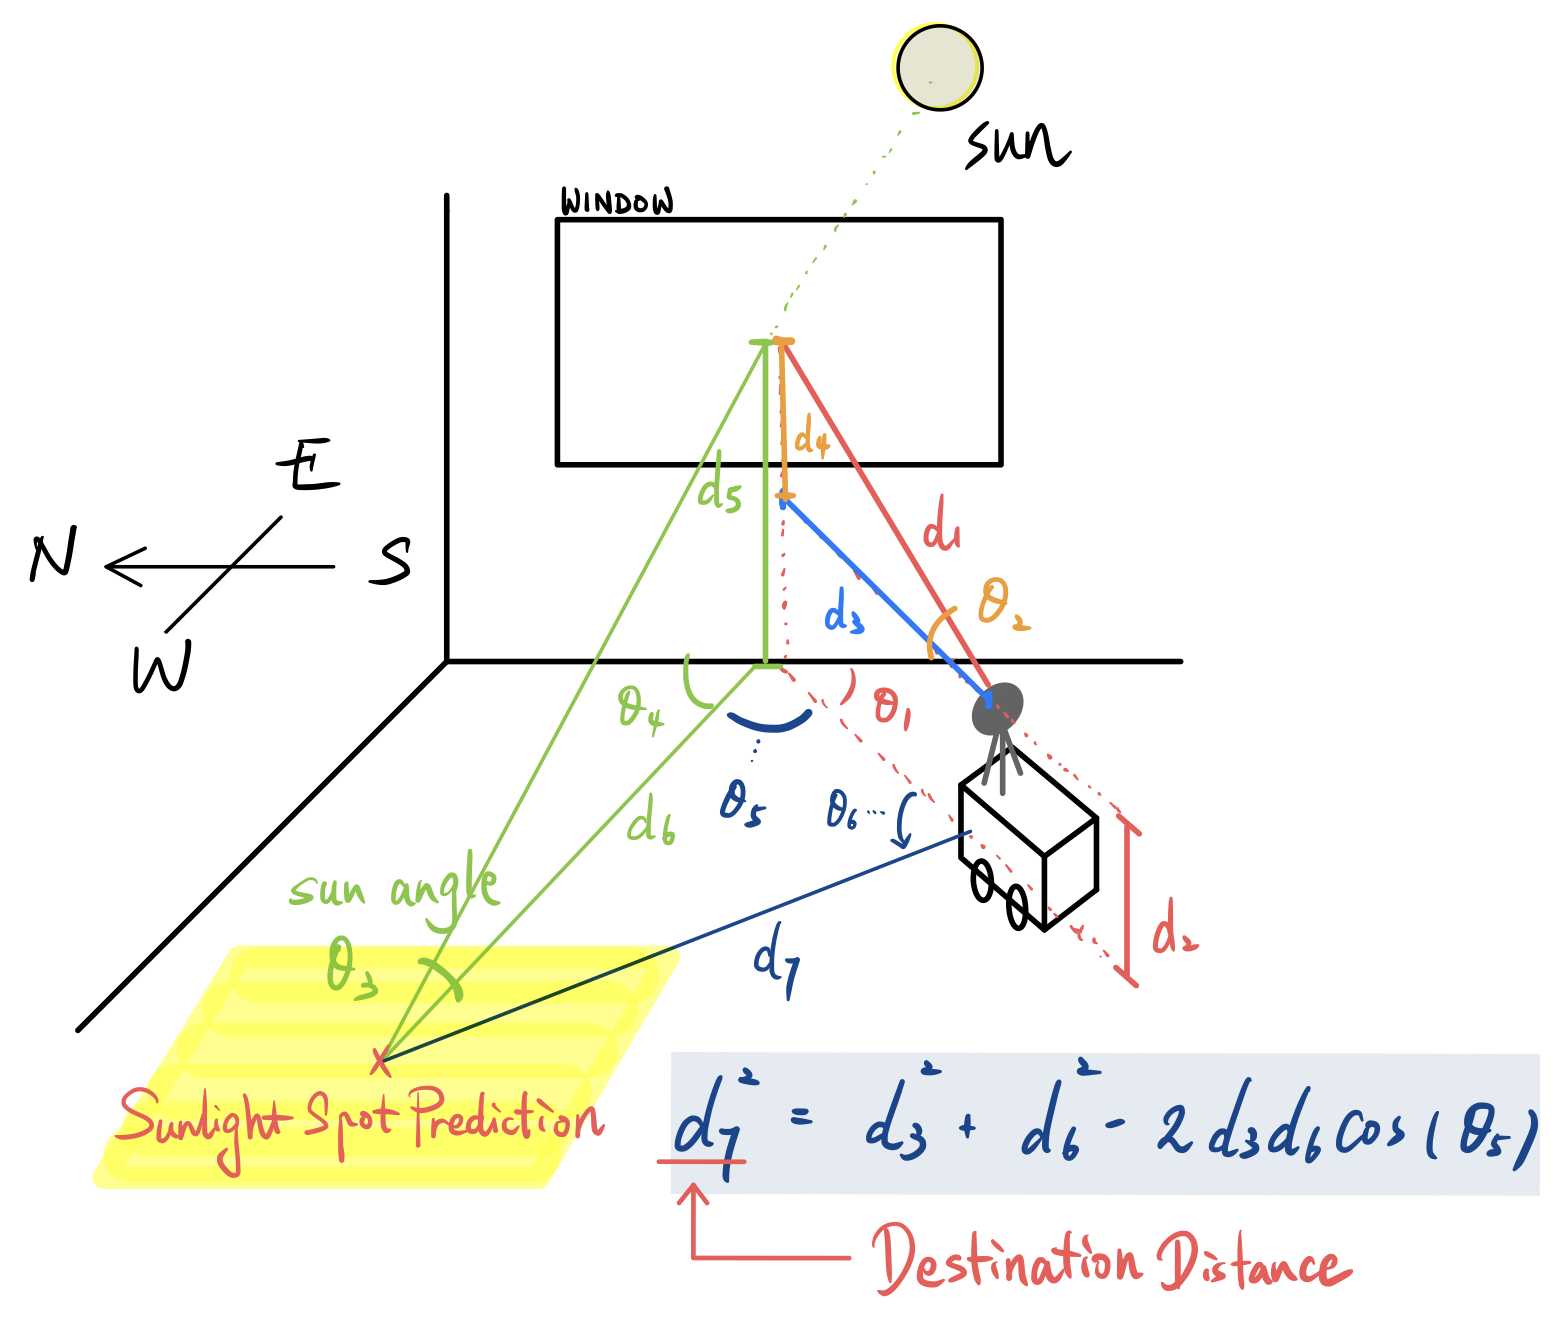 sun
WINDOW
d4
E
d5
d1
N
S
θ2
d3
W
θ4
θ1
θ5
θ6
d6
sun angle
θ3
d2
d7
Sunlight Spot Prediction
d7² = d3² + d6² - 2d3d6cos(θ5)
Destination Distance